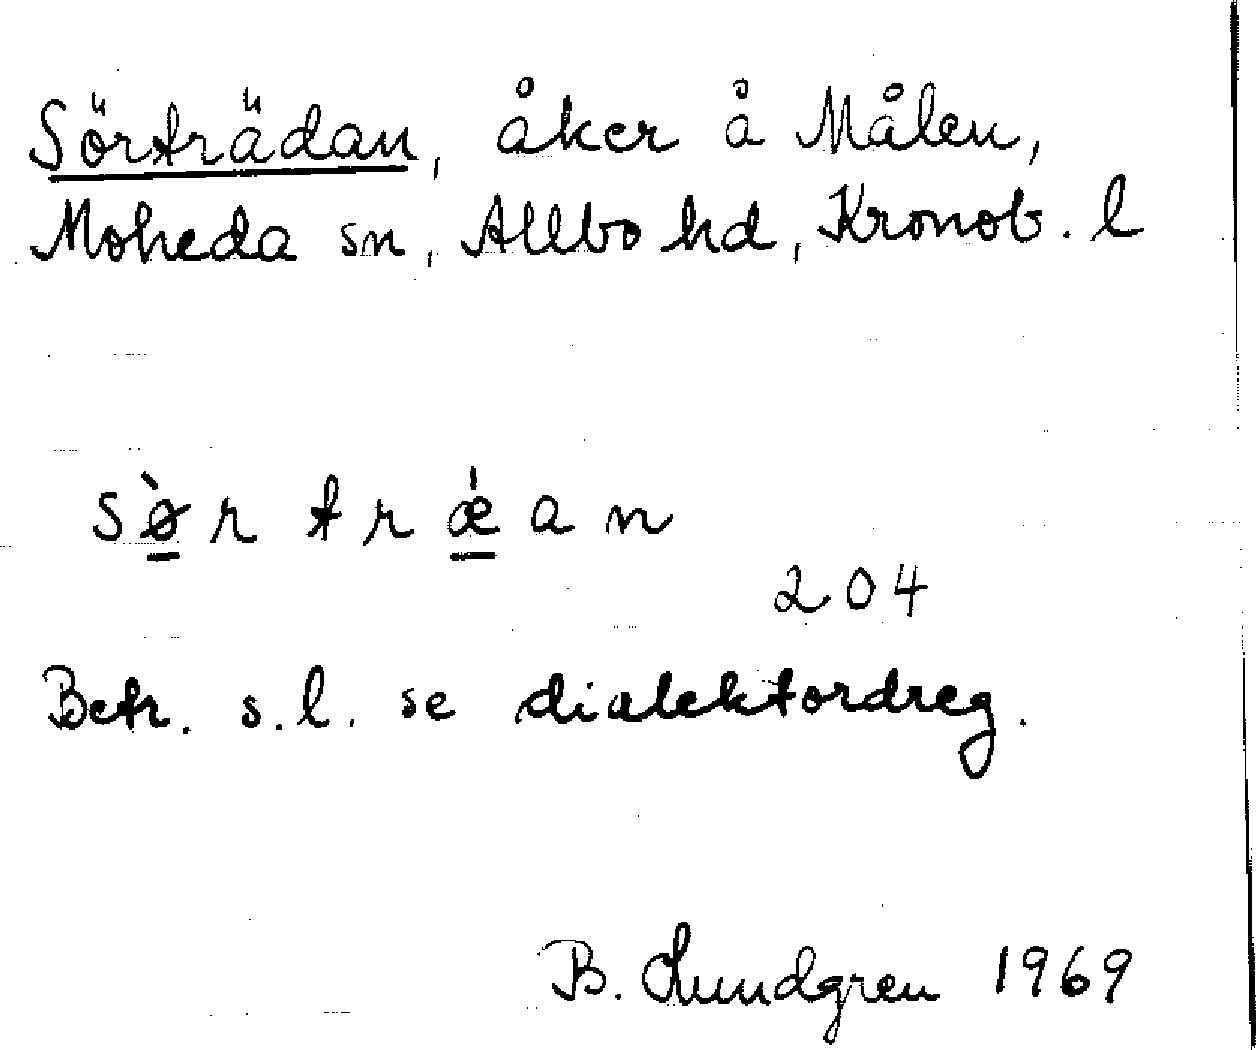 Sörträdan, åker å Målen,
Moheda sn, Allbo hd, Kronob. l
s ø̲̀ r t r ǽ̲ a n
204
Betr. s.l. se dialektordreg.
B. Lundgren 1969